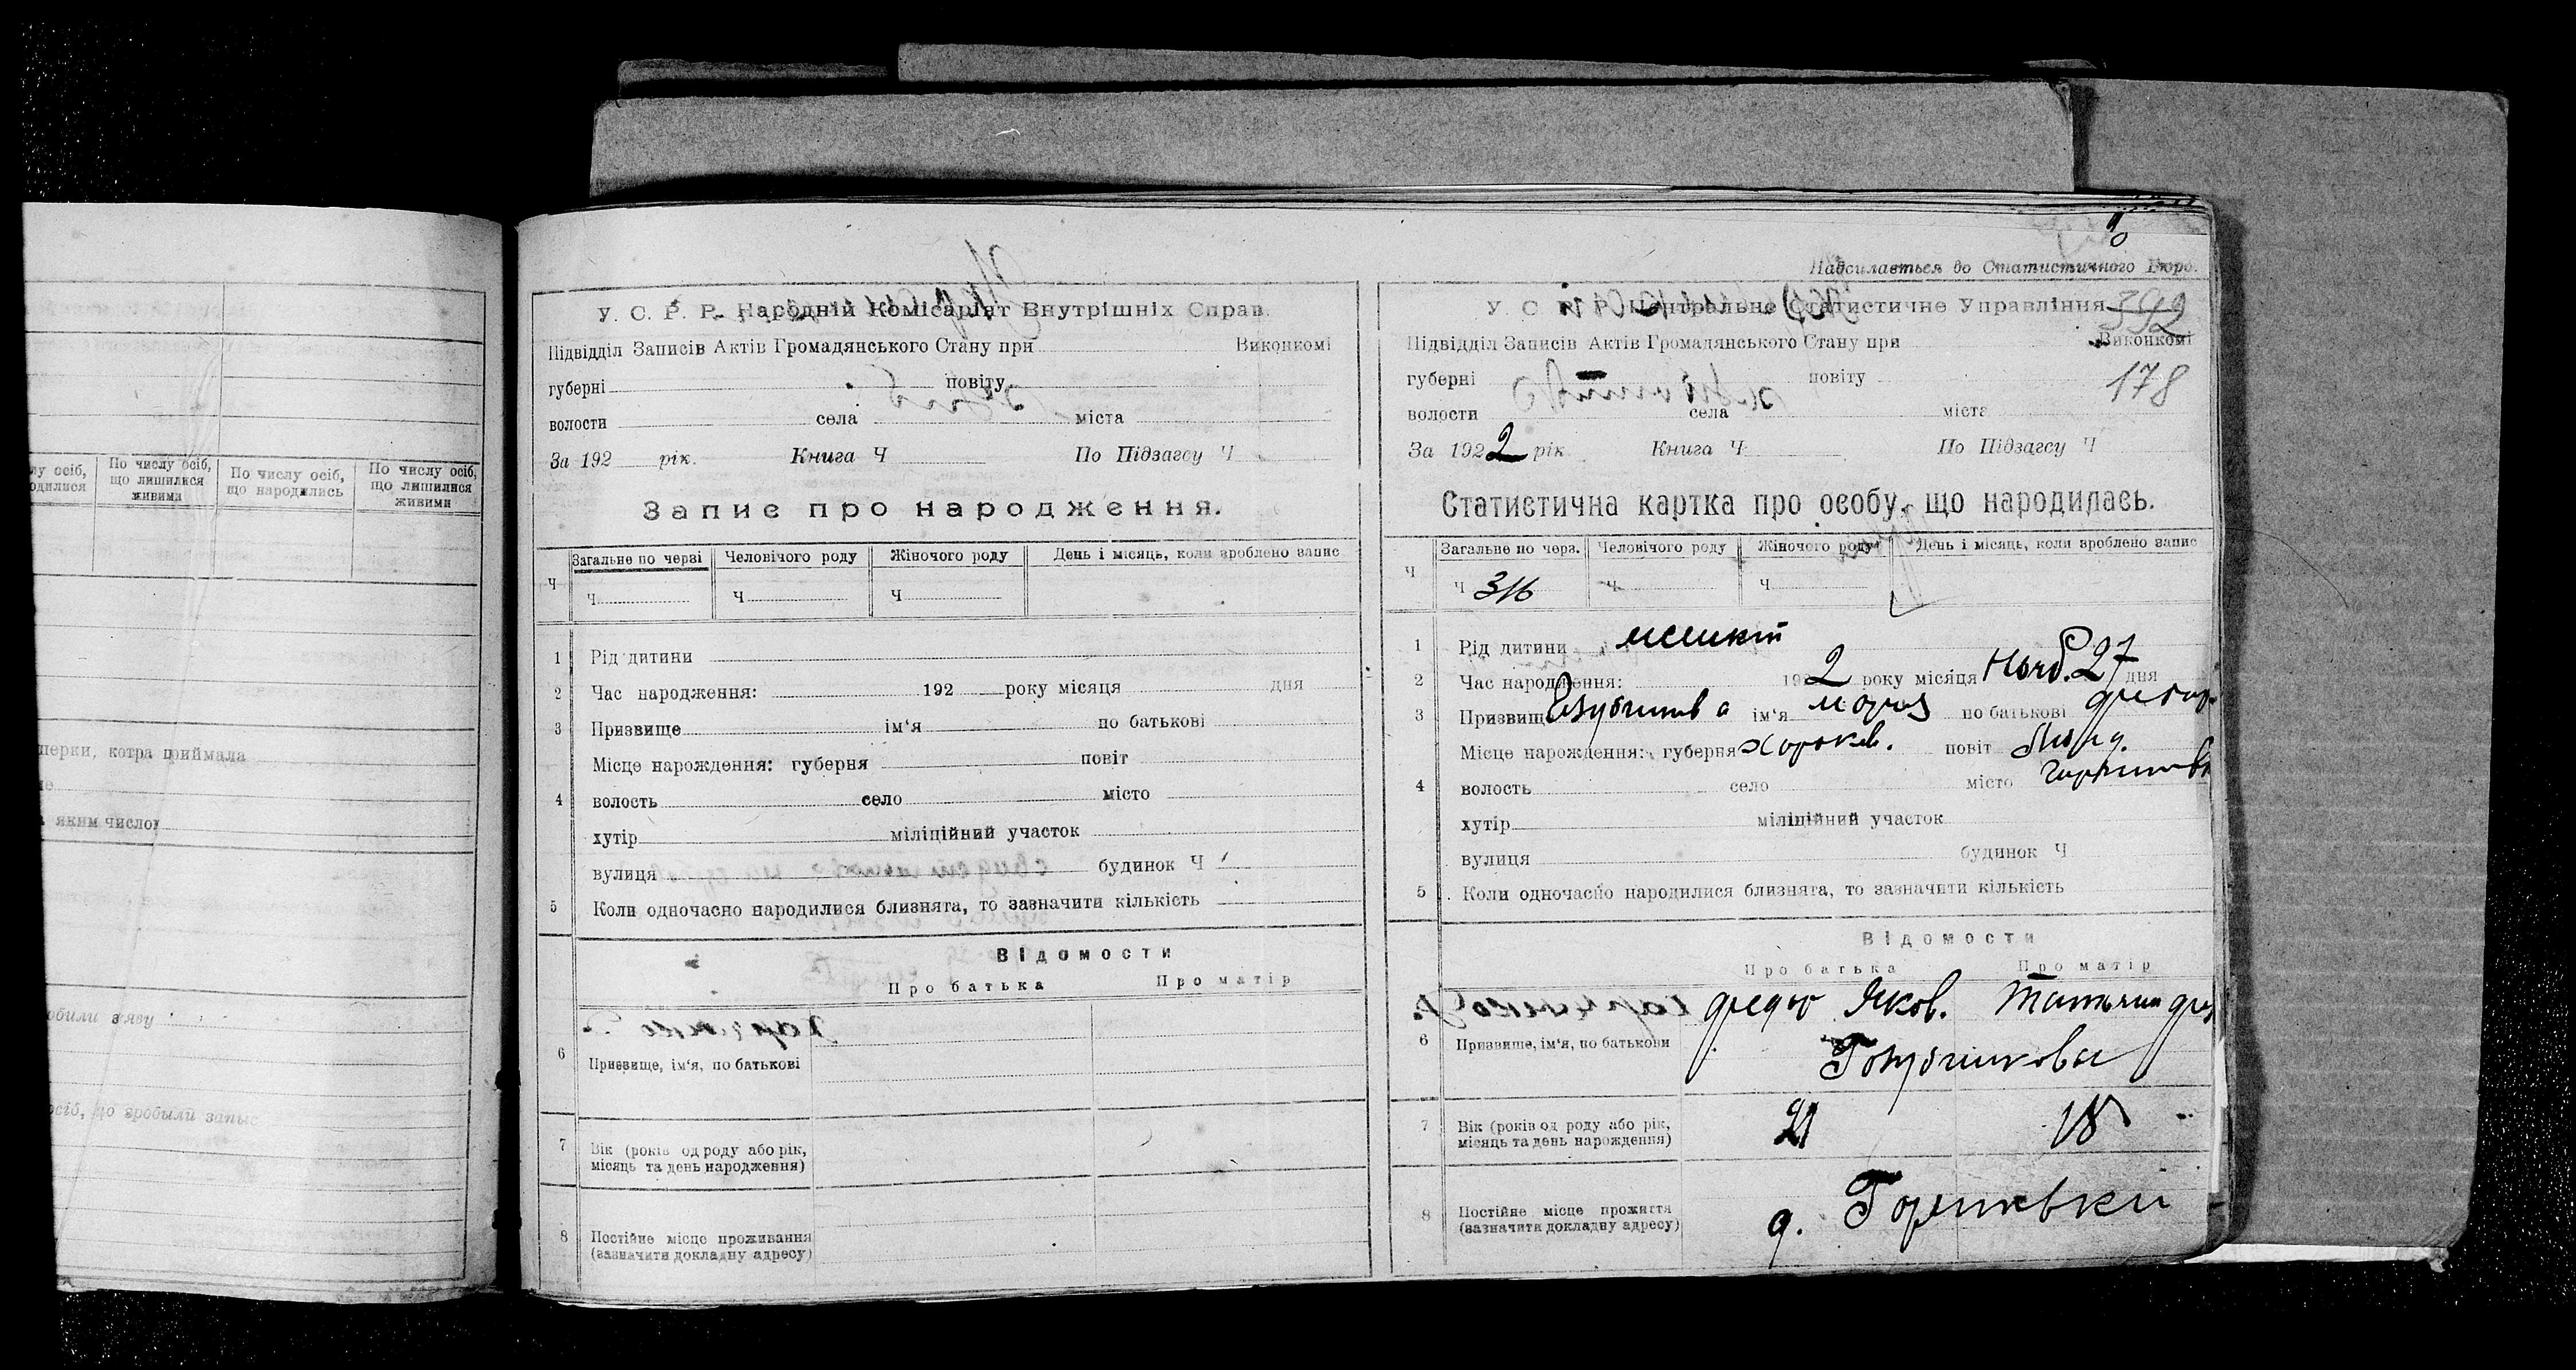 лу осіб,
одилися
По числу осіб,
що лишилися
живими
По числу осіб,
що народились
По числу осіб,
що лишилися
живими
шерки, котра приймала
яким число
обили заяву
осіб, що зробыли запис
У. С. Р. Р. Народній Комісаріат Внутрішніх Справ.
Підвідділ Записів Актів Громадянського Стану при Виконкомі
губерні повіту
волости села міста
За 192 рік. Книга Ч По Підзагсу Ч
Запис про народження.
Ч Загальне по черзі Человічого роду Жіночого роду День і місяць, коли зроблено запис
Ч Ч Ч
1 Рід дитини
2 Час народження: 192 року місяця дня
3 Призвище ім‘я по батькові
Місце нарождення: губерня повіт
4 волость село місто
хутір міліційний участок
вулиця будинок Ч
5 Коли одночасно народилися близнята, то зазначити кількість
Відомости
Про батька Про матір
6 Призвище, ім‘я, по батькові
7 Вік (років од роду або рік,
місяць та день народження)
8 Постійне місце проживання
(зазначити докладну адресу)
Надсилається до Статистичного Бюро.
У. С. Р. Р. Центральне Статистичне Управління 392
Підвідділ Записів Актів Громадянського Стану при Виконкомі
губерні повіту 178
волости села міста
За 1922 рік Книга Ч По Підзагсу Ч
Статистична картка про особу, що народилась.
Ч Загальне по черз. Человічого роду Жіночого роду День і місяць, коли зроблено запис
Ч 316 Ч Ч
1 Рід дитини
2 Час народження: 1922 року місяця Нояб. 27 дня
3 Призвищ ім‘я по батькові
Місце нарождення: губерня Харьков. повіт
4 волость село місто
хутір міліційний участок
вулиця будинок Ч
5 Коли одночасно народилися близнята, то зазначити кількість
Відомости
Про батька Про матір
Яков.
6 Призвише, ім‘я, по батькови
7 Вік (років од роду або рік,
місяць та день нарождення)
21 18
8 Постійне місце прожиття
(зазначити докладну адресу)